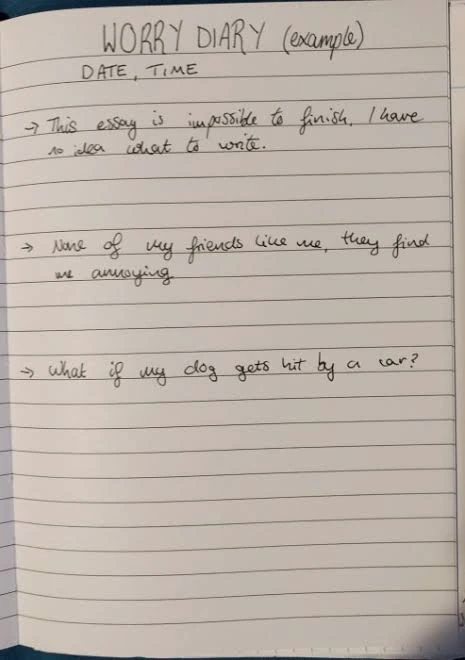 WORRY DIARY (example)
DATE, TIME
→ This essay is impossible to finish, I have
no idea what to write.
→ None of my friends like me, they find
me annoying
→ What if my dog gets hit by a car?